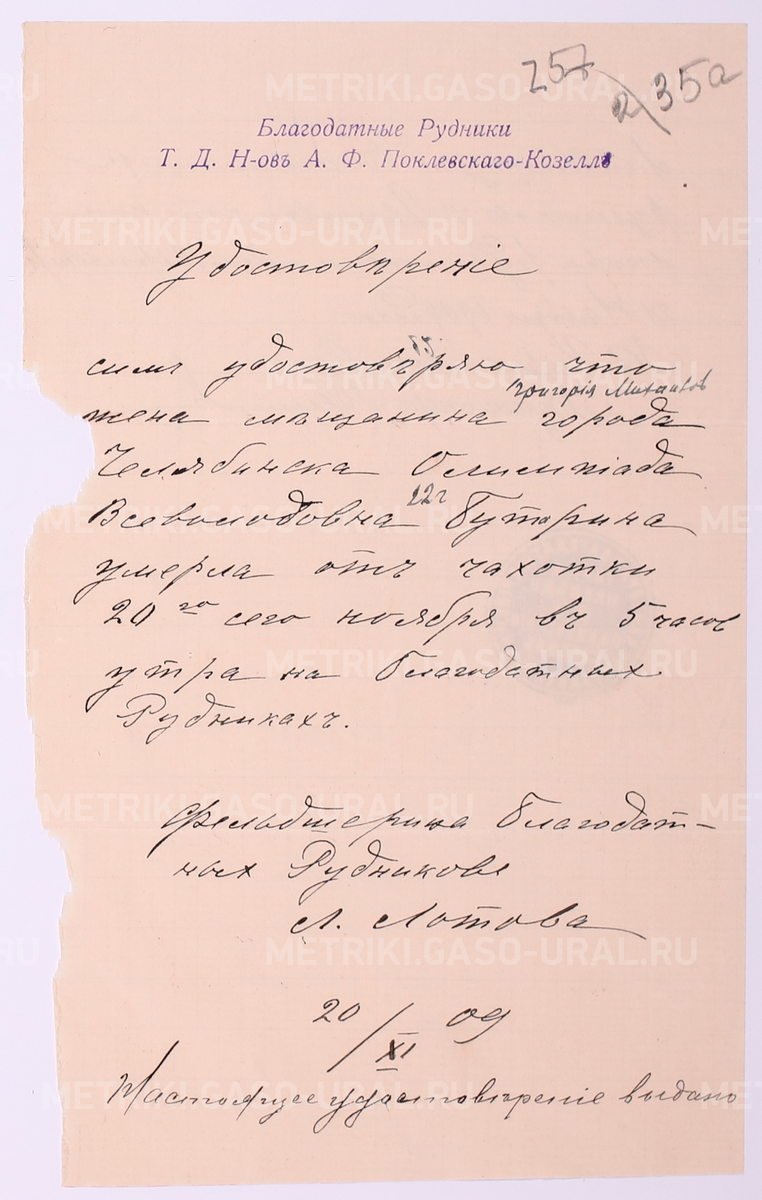 257
235а
Благодатные Рудники
Т. Д. Н-овъ А. Ф. Поклевскаго-Козеллъ
METRIKI.GASO-URAL.RU
Удостовѣреніе
симъ удостовѣряю что
Григорія
жена мѣщанина города
Челябинска Олимпіада
22 г
Всеволодовна Буторина
умерла отъ чахотки
20го сего ноября въ 5 часов
утра на Благодатныхъ
Рудникахъ.
Фельдшерица Благодат-
ныхъ Рудниковъ
Л. Лотова
20/XI 09
Настоящее удостовѣреніе выдано